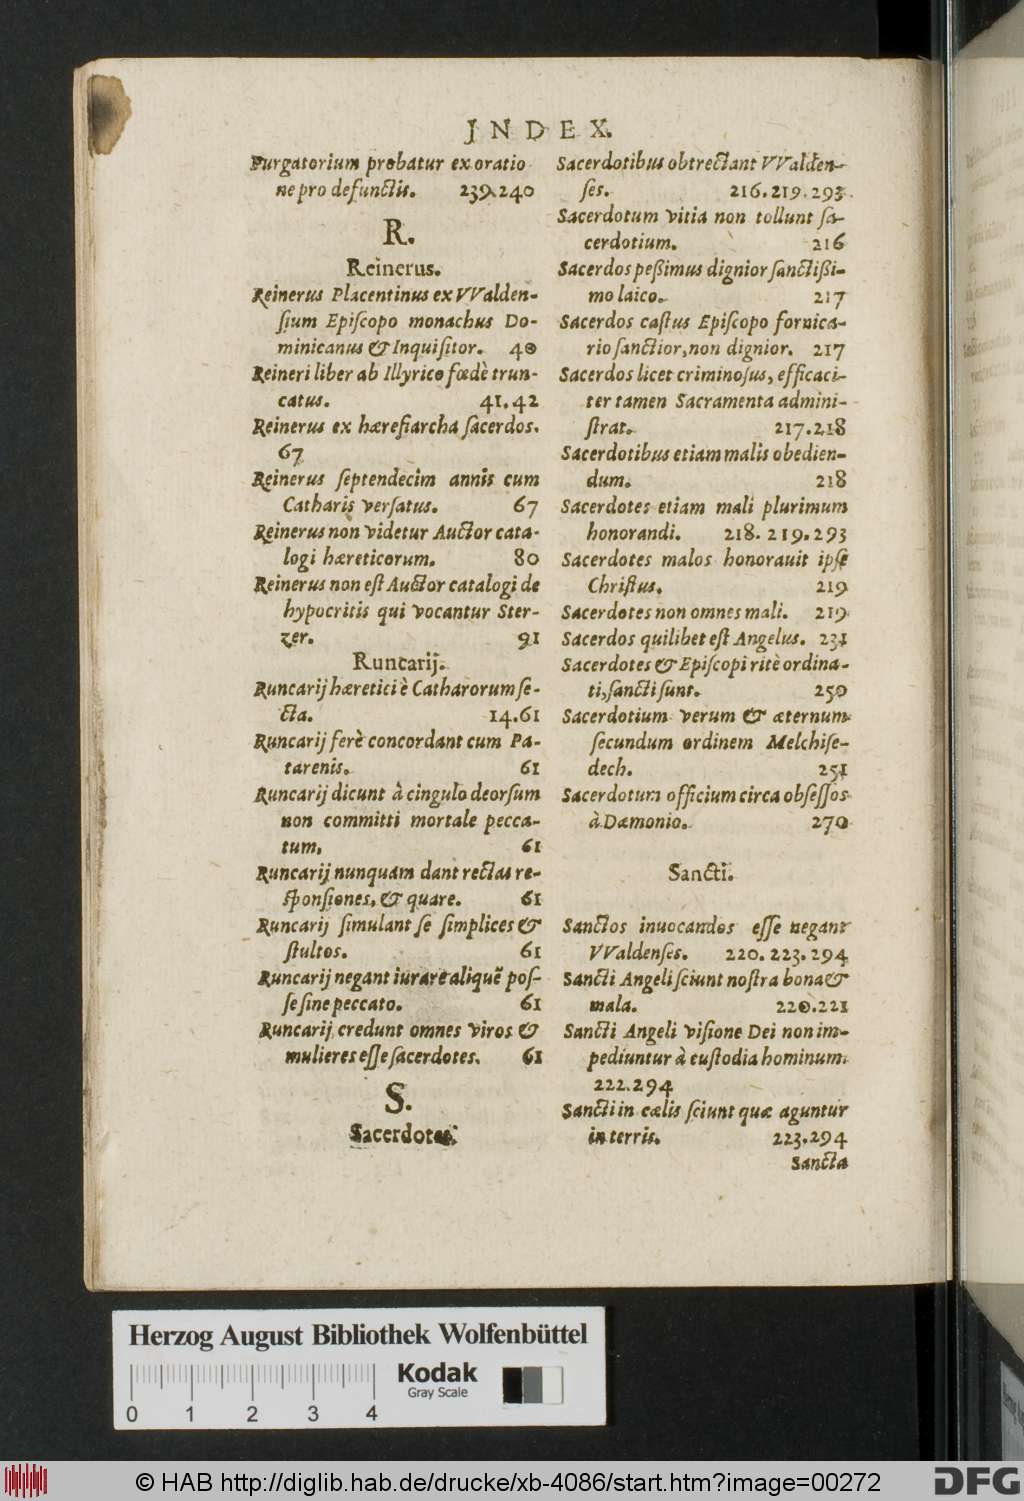 JNDEX.
Purgatorium probatur ex oratio
ne pro defunctis. 239.240
R.
Reinerus.
Reinerus Placentinus ex VValden-
sium Episcopo monachus Do-
minicanus & Inquisitor. 40
Reineri liber ab Illyrico fœdè trun-
catus. 41.42
Reinerus ex hæresiarcha sacerdos.
67
Reinerus septendecim annis cum
Catharis versatus. 67
Reinerus non videtur Auctor cata-
logi hæreticorum. 80
Reinerus non est Auctor catalogi de
hypocritis qui vocantur Ster-
zer. 91
Runcarij.
Runcarij hæretici è Catharorum se-
cta. 14.61
Runcarij ferè concordant cum Pa-
tarenis. 61
Runcarij dicunt à cingulo deorsum
non committi mortale pecca-
tum. 61
Runcarij nunquam dant rectas re-
sponsiones, & quare. 61
Runcarij simulant se simplices &
stultos. 61
Runcarij negant iurare aliquẽ pos-
se sine peccato. 61
Runcarij credunt omnes viros &
mulieres esse sacerdotes. 61
S.
Sacerdotes.
Sacerdotibus obtrectant VValden-
ses. 216.219.293
Sacerdotum vitia non tollunt sa-
cerdotium. 216
Sacerdos peßimus dignior sanctißi-
mo laico. 217
Sacerdos castus Episcopo fornica-
rio sanctior, non dignior. 217
Sacerdos licet criminosus, efficaci-
ter tamen Sacramenta admini-
strat. 217.218
Sacerdotibus etiam malis obedien-
dum. 218
Sacerdotes etiam mali plurimum
honorandi. 218. 219.293
Sacerdotes malos honorauit ipse
Christus. 219
Sacerdotes non omnes mali. 219
Sacerdos quilibet est Angelus. 231
Sacerdotes & Episcopi ritè ordina-
ti, sancti sunt. 250
Sacerdotium verum & æternum
secundum ordinem Melchise-
dech. 251
Sacerdotum officium circa obsessos
à Dæmonio. 270
Sancti.
Sanctos inuocandos esse negant
VValdenses. 220. 223. 294
Sancti Angeli sciunt nostra bona &
mala. 220.221
Sancti Angeli visione Dei non im-
pediuntur à custodia hominum.
222.294
Sancti in cælis sciunt quæ aguntur
in terris. 223.294
Sancta
Herzog August Bibliothek Wolfenbüttel
Kodak
Gray Scale
0 1 2 3 4
© HAB http://diglib.hab.de/drucke/xb-4086/start.htm?image=00272
DFG